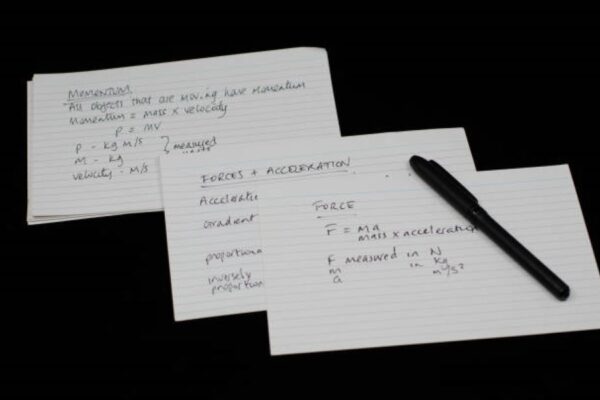 MOMENTUM
"All objects that are moving have momentum
Momentum = mass x velocody
P = MV
P - kg m/s } measured
M - kg
velocity - M/s
FORCES + ACCELERATION
Acceleratio
Gradient
proportiona
inversely
proportion
FORCE
F = ma
mass x acceleration
F measured in N
m in kg
a m/s²